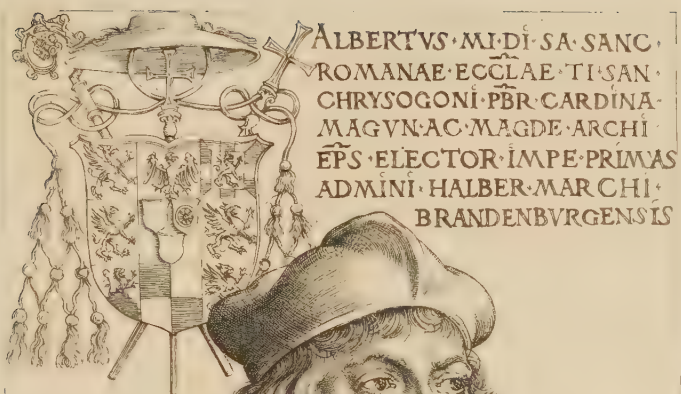 ALBERTVS·MI·DI·SA·SANC·
ROMANAE·ECCLAE·TI·SAN·
CHRYSOGONI·PBR·CARDINA·
MAGVN·AC·MAGDE·ARCHI
EPS·ELECTOR·IMPE·PRIMAS
ADMINI·HALBER·MARCHI·
BRANDENBVRGENSIS